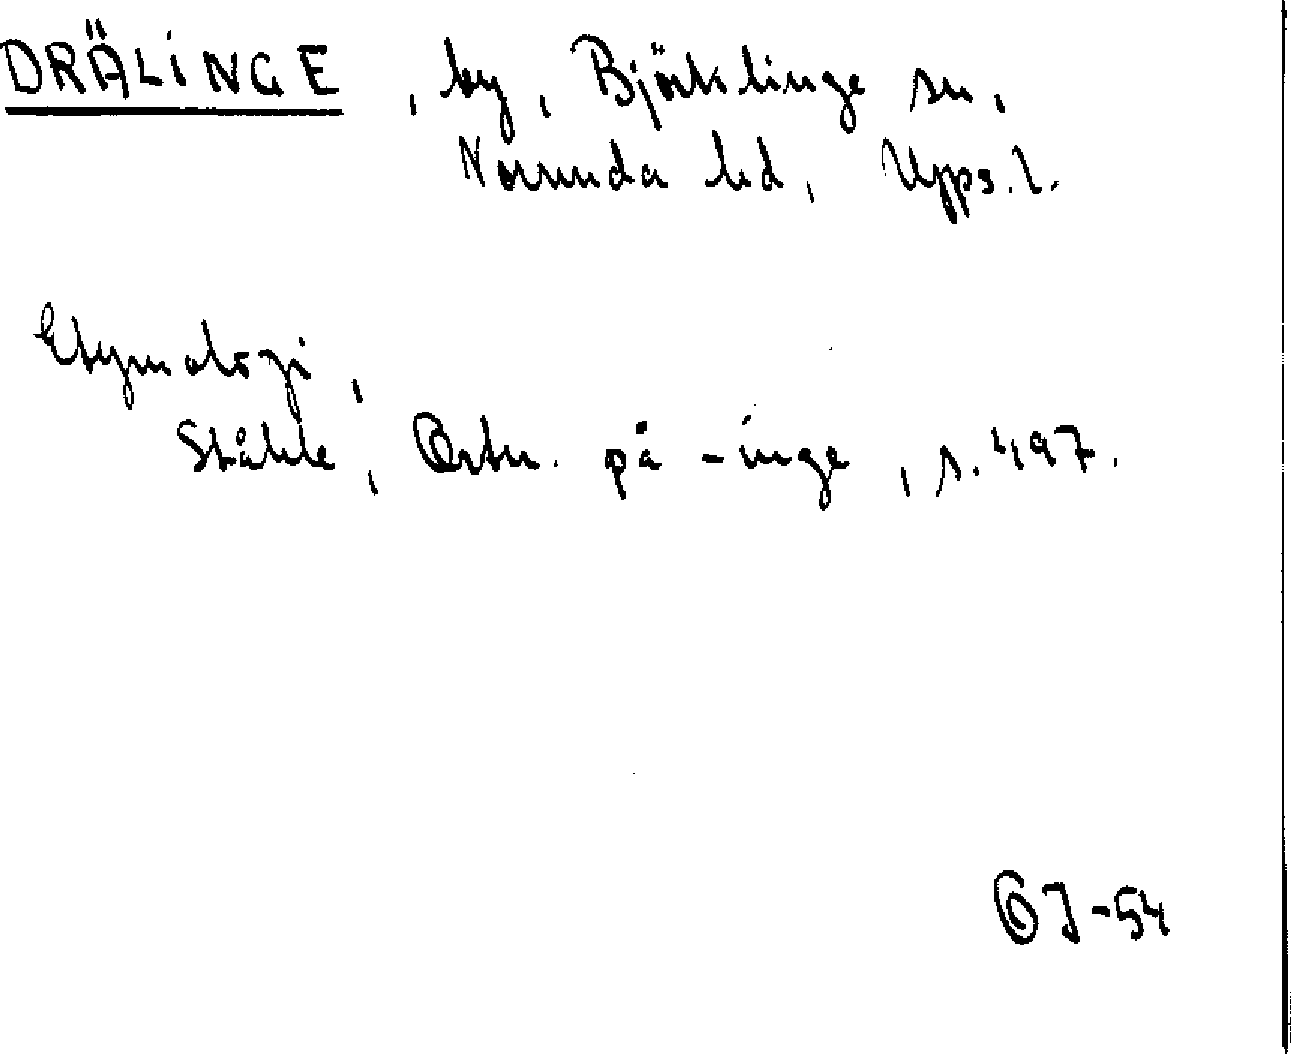 DRÄLINGE, by, Björklinge sn,
Norunda hd, Upps. l.
Etymologi,
Ståhle, Ortn. på -inge, s. 497.
OJ-54